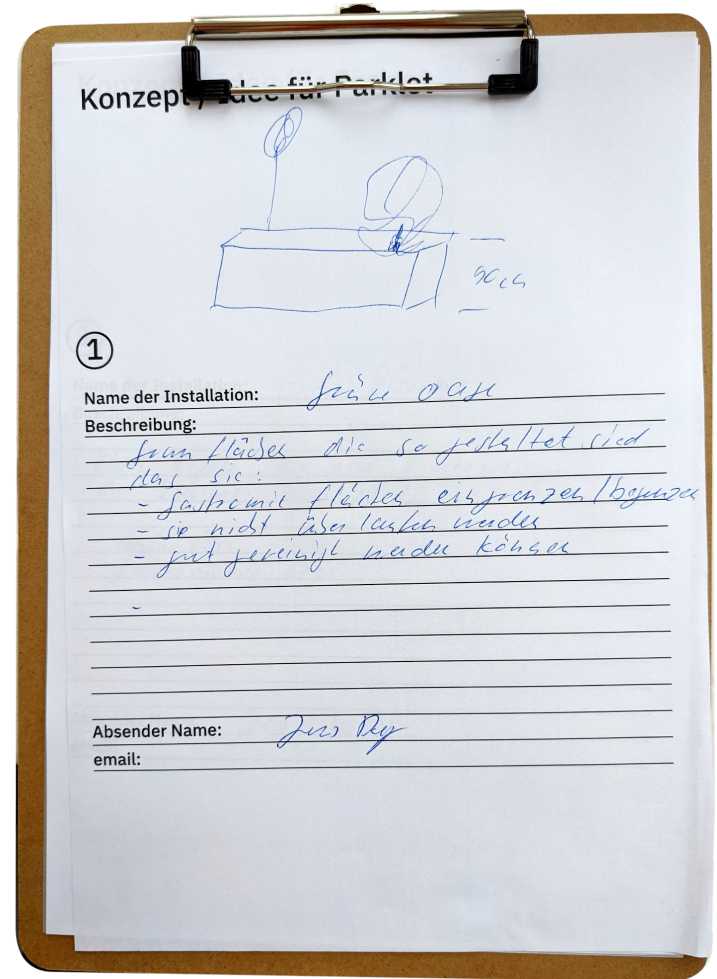 Konzept / Idee für Parklet
90 cm
1
Name der Installation: grüne oase
Beschreibung:
grün flächen die so gestaltet sind
das sie:
- gastromie flächen eingrenzen/begrenzen
- sie nicht über laufen werden
- gut gereinigt werden können
-
Absender Name: Jens
email: